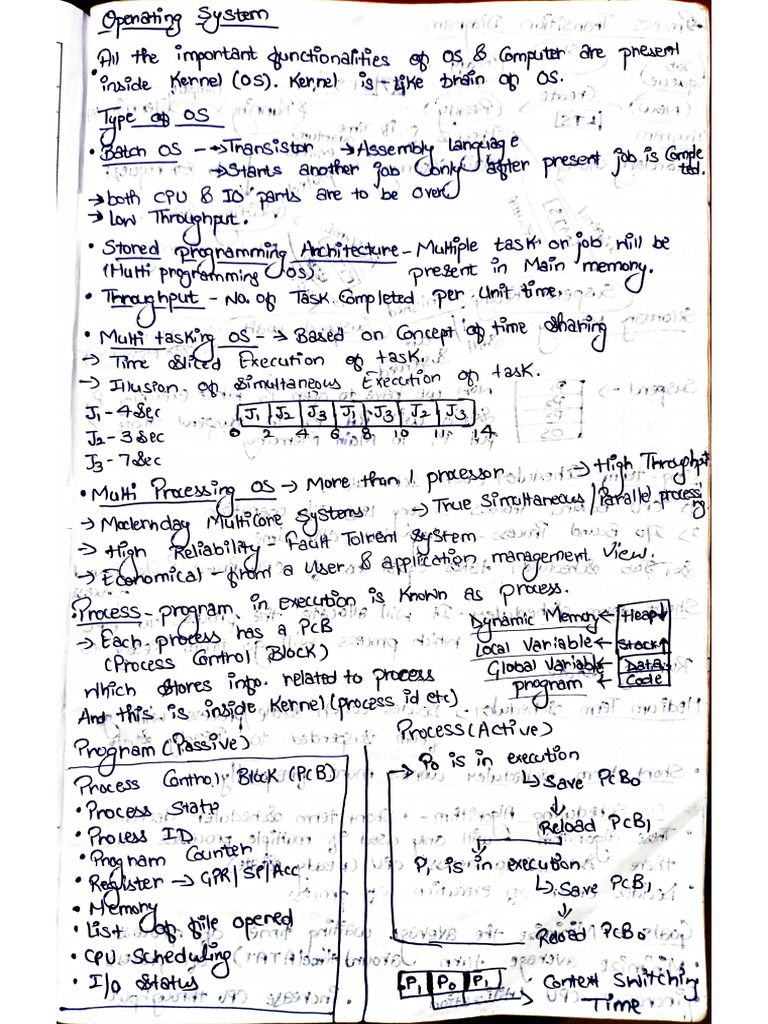 Operating System
All the important functionalities of OS & Computer are present
inside Kernel (OS). Kernel is like brain of OS.
Type of OS
• Batch OS - → Transistor → Assembly language
→ Starts another job only after present job is Comple
ted.
→ both CPU & IO parts are to be over
→ Low Throughput.
• Stored programming Architecture - Multiple task or job will be
(Multi programming OS) present in Main memory.
• Throughput - No. of Task Completed per Unit time.
• Multi tasking OS - → Based on Concept of time sharing
→ Time Sliced Execution of task.
→ Illusion of Simultaneous Execution of task.
J1 - 4 Sec
J1 J2 J3 J1 J3 J2 J3
0 2 4 6 8 10 11 14
J2 - 3 Sec
J3 - 7 Sec
• Multi Processing OS → More than 1 processor → High Throughput
→ Modernday Multicore Systems → True Simultaneous / Parallel processi
ng
→ High Reliability - Fault Tolrent System
→ Economical - from a User & application management view.
• Process - program in execution is known as process.
→ Each process has a PCB
(Process Control Block)
which stores info. related to process
And this is inside Kernel (process id etc)
Dynamic Memory ← Heap ↓
Local Variable ← Stack ↑
Global Variable ← Data
program ← Code
Program (Passive)
Process Control Block (PCB)
• Process State
• Process ID
• Program Counter
• Register → GPR/SP/Acc
• Memory
• List of file opened
• CPU Scheduling
• I/O Status
Process (Active)
P0 is in execution
↳ Save PCB0
↓
Reload PCB1
P1 is in execution
↳ Save PCB1
↓
Reload PCB0
P1 P0 P1
→ Context Switching
Time